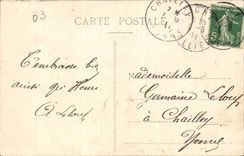 D3
CARTE POSTALE
CHAILLEY
5
T'embrasse bien
ainsi que Henri
A. Leloup
Mademoiselle
Germaine Leloup
à Chailley
Yonne